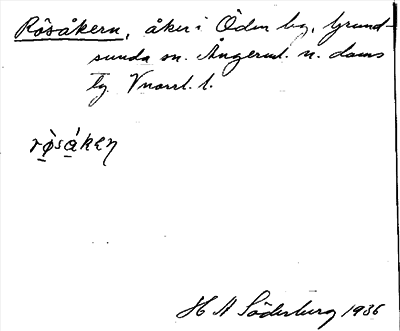 Rösåkern, åker i Öden by, Grund-
sunda sn. Ångerml. n. doms
tg. Vnorrl. l.
rö̀såkeɳ
H A Söderberg 1936